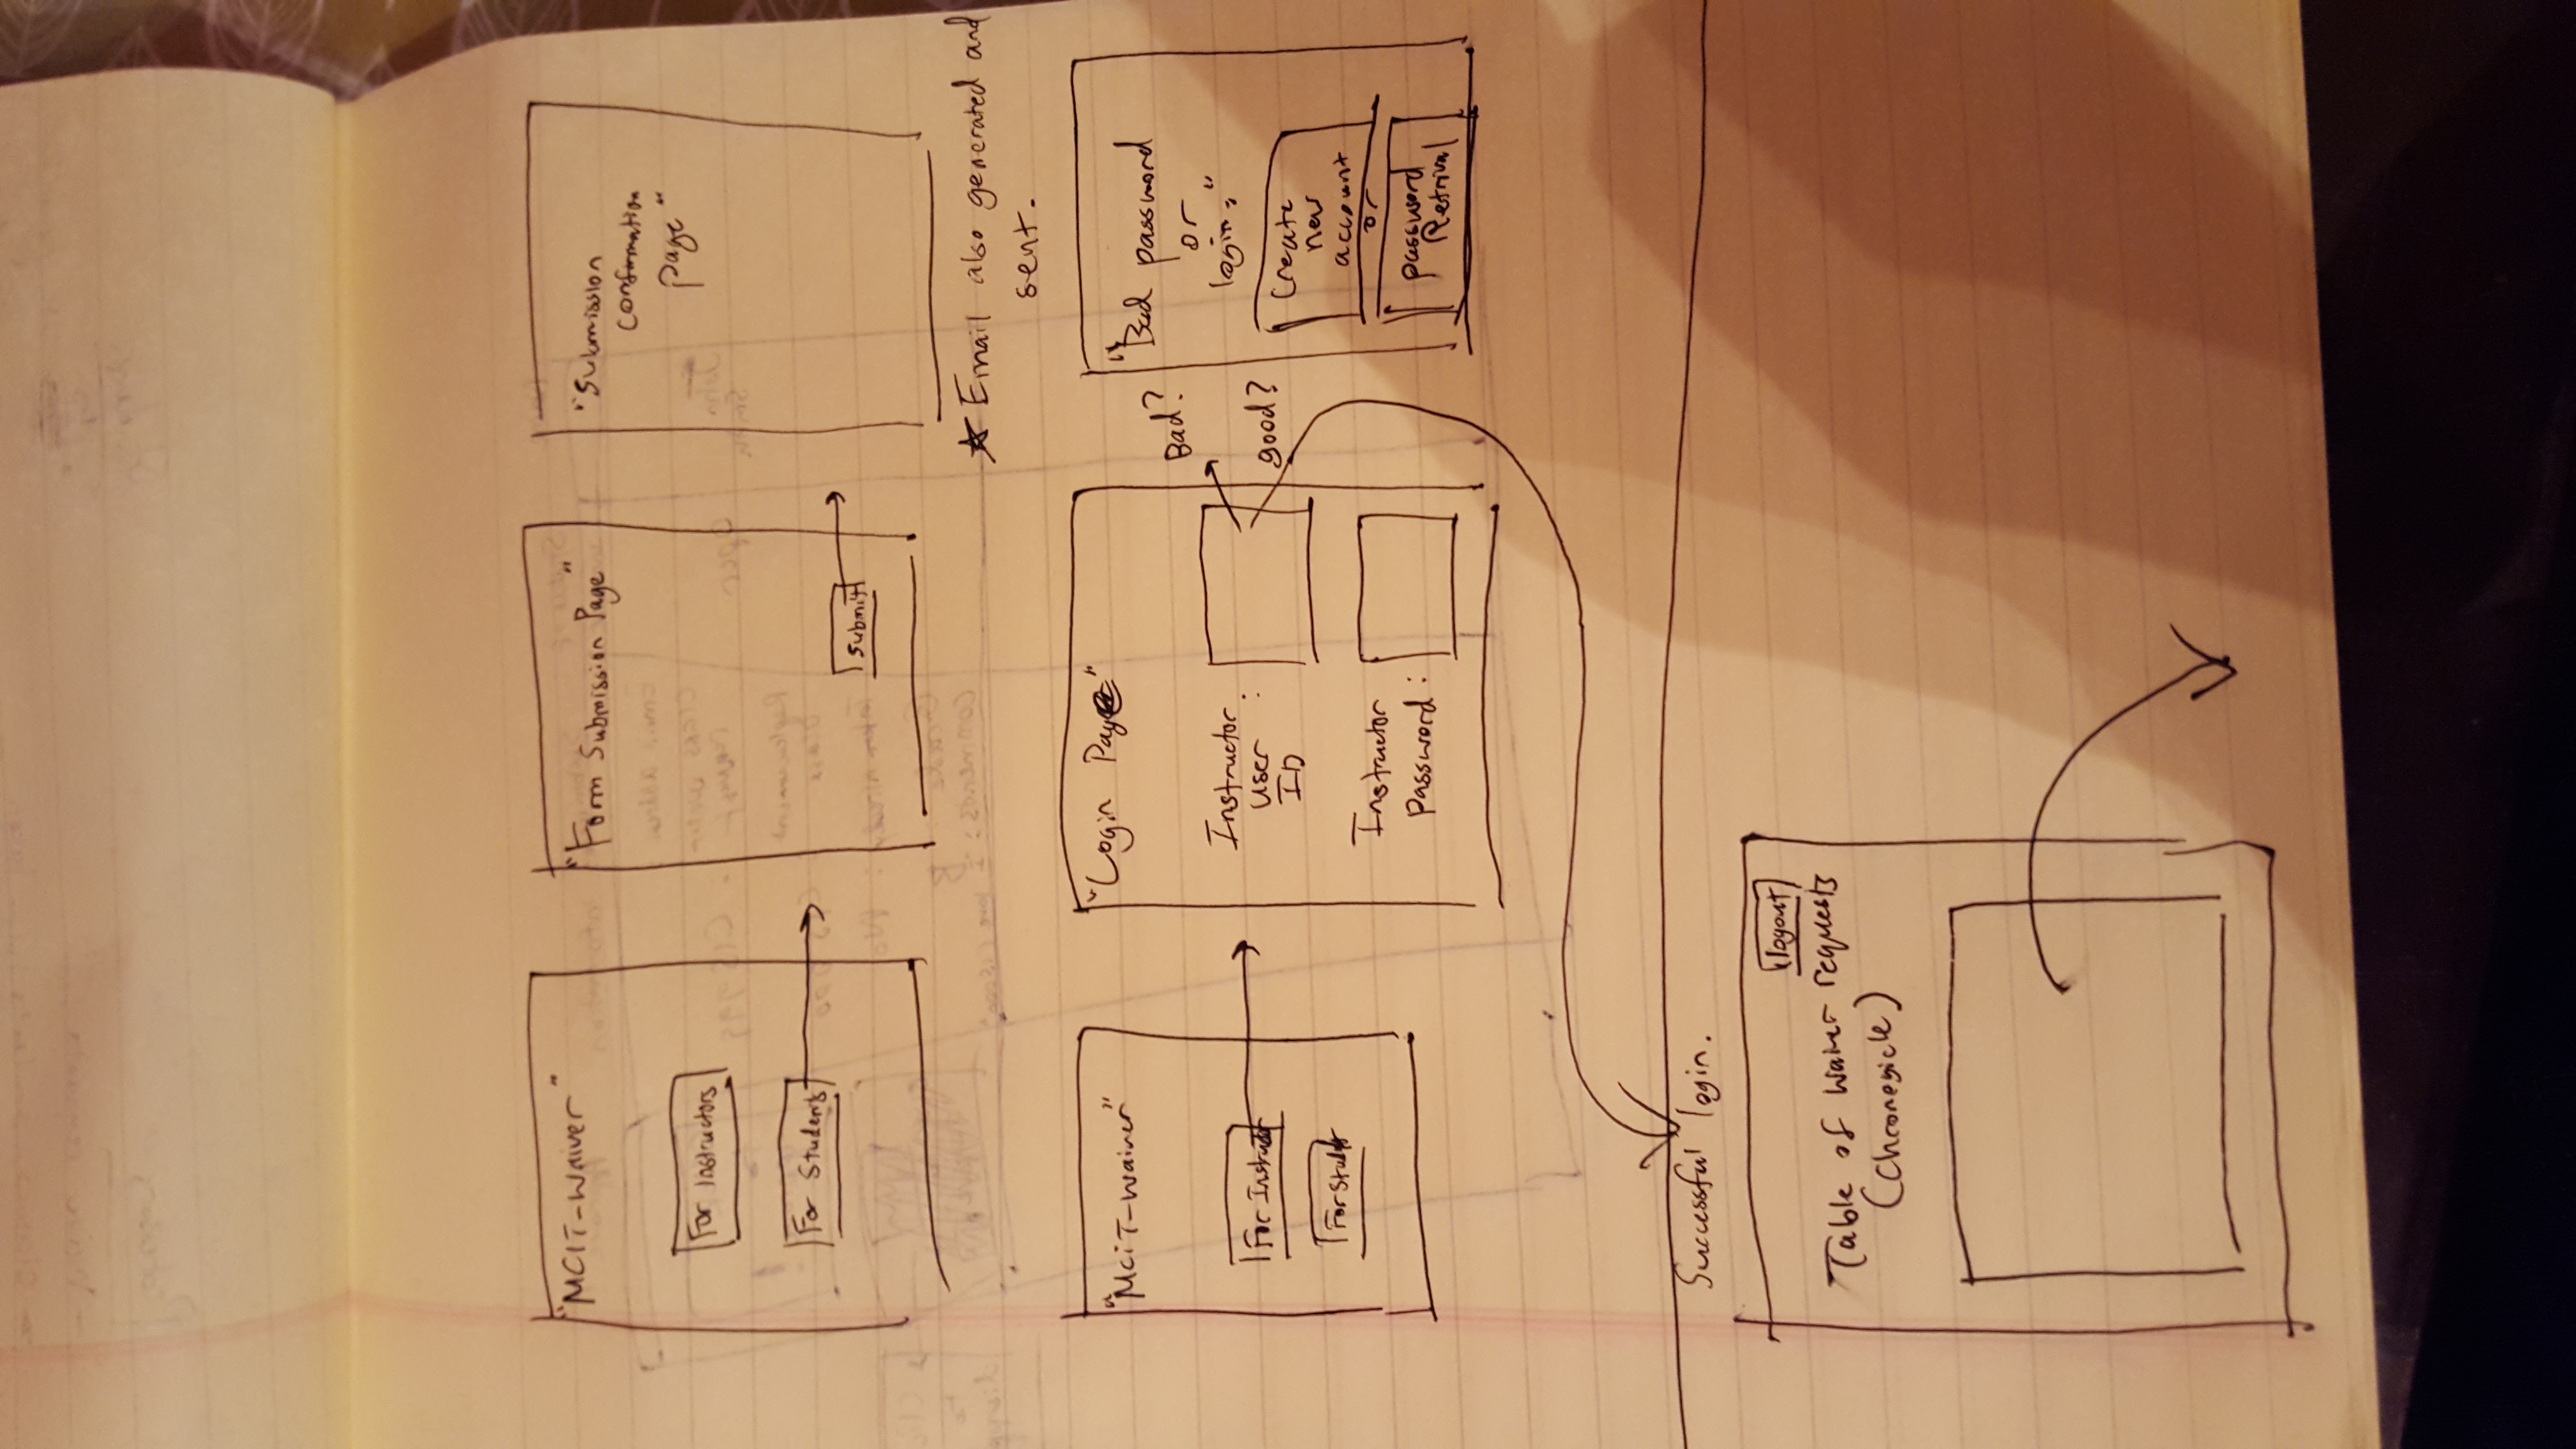 "MCIT-Waiver"
For Instructors
For Students
"Form Submission Page"
Submit
"Submission
Confirmation
page"
★ Email also generated and
sent.
"MCIT-Waiver"
For Instruct
For Studt
"Login Page"
Instructor
User :
ID
Instructor
Password :
Bad?
good?
"Bad password
or
login."
Create
new
account
or
password
Retrival
Successful login.
logout
Table of waiver requests